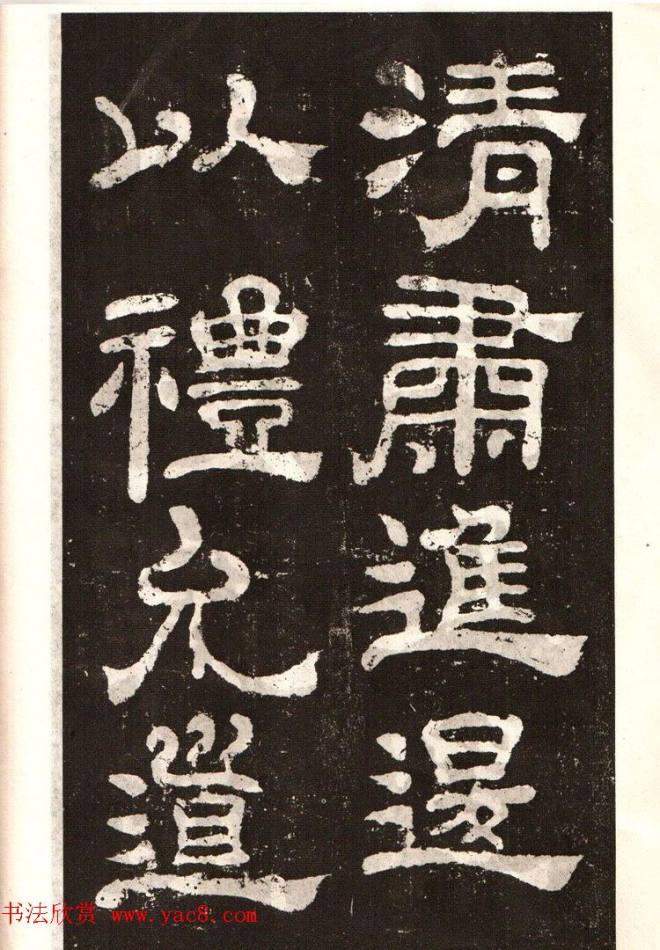 清肅進𨓤
以禮允道
书法欣赏 www.yac8.com